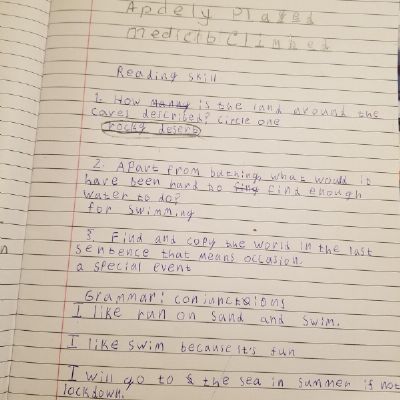 Apdely Plazed
medictb Climbed
Reading skill
1. How many is the land around the
caves described? circle one
rocky desert
2. Apart from bathing, what would it
have been hard to find enough
water to do?
for swimming
3. Find and copy the world in the last
sentence that means occasion.
a special event
Grammar: conjunctions
I like run on sand and swim.
I like swim because it's fun
I will go to the sea in summer if not
lockdown.